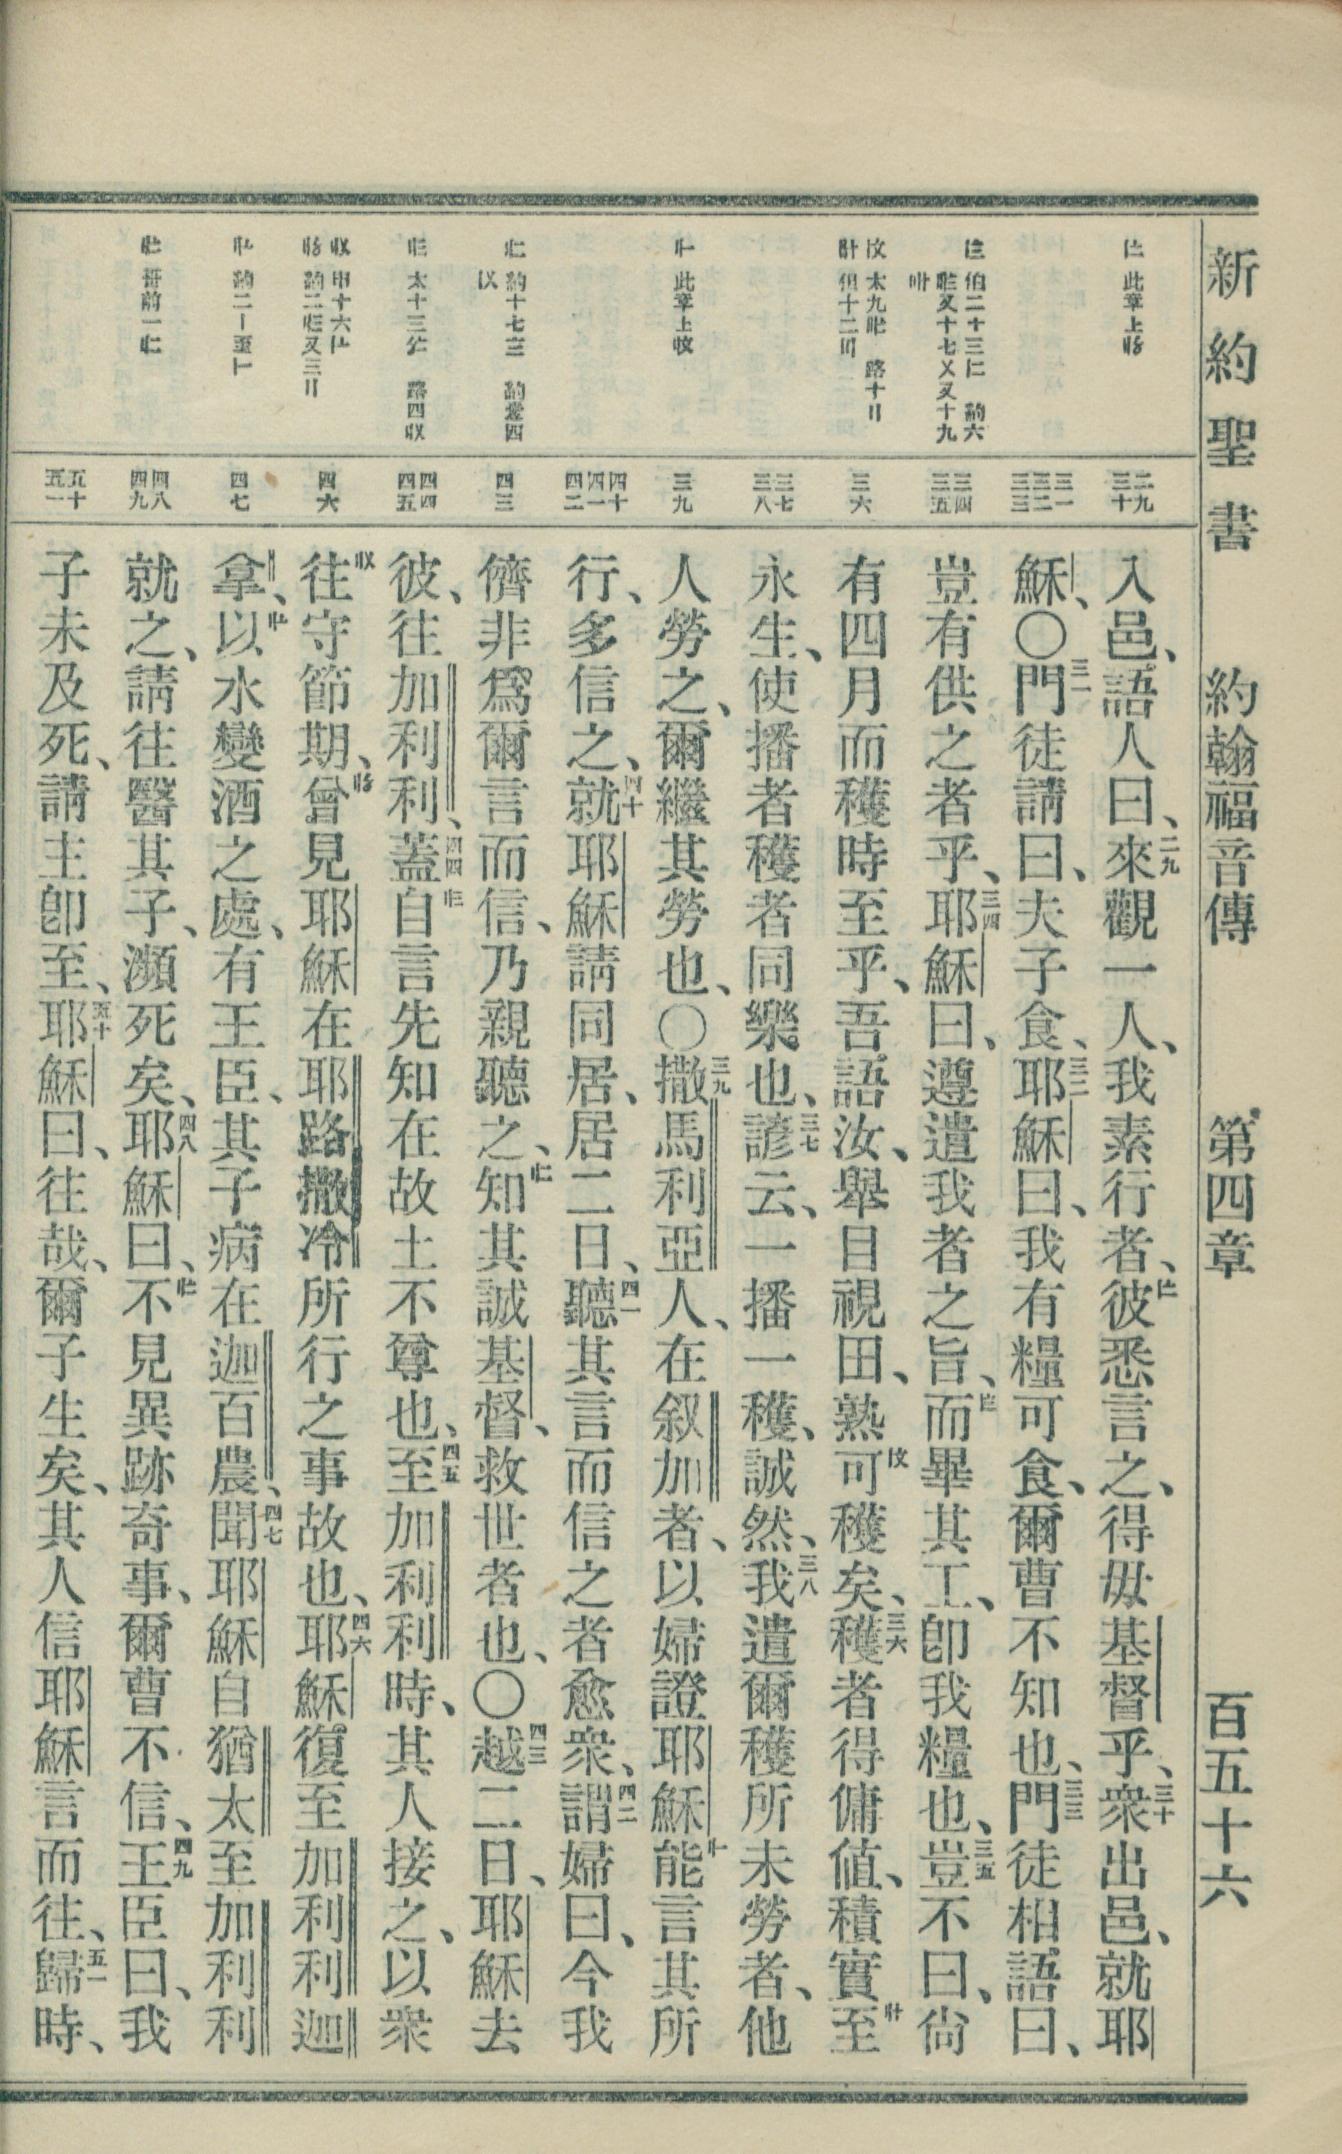 新約聖書 約翰福音傳 第四章 百五十六
二九 三十
三一 三二 三三
三四 三五
三六
三七 三八
三九
四十 四一 四二
四三
四四 四五
四六
四七
四八 四九
五十 五一
入邑、語人曰、二九來觀一人、我素行者、彼悉言之、得毋基督乎、三十衆出邑、就耶
穌、〇三一門徒請曰、夫子食、三二耶穌曰、我有糧可食、爾曹不知也、三三門徒相語曰、
豈有供之者乎、三四耶穌曰、遵遣我者之旨、而畢其工、卽我糧也、三五豈不曰、尙
有四月而穫時至乎、吾語汝、舉目視田、熟可穫矣、三六穫者得傭値、積實至
永生、使播者穫者同樂也、三七諺云、一播一穫、誠然、三八我遣爾穫所未勞者、他
人勞之、爾繼其勞也、〇三九撒馬利亞人、在叙加者、以婦證耶穌能言其所
行、多信之、四十就耶穌請同居、居二日、四一聽其言而信之者愈衆、四二謂婦曰、今我
儕非爲爾言而信、乃親聽之、知其誠基督、救世者也、〇四三越二日、耶穌去
彼、往加利利、四四蓋自言先知在故土不尊也、四五至加利利時、其人接之、以衆
往守節期、曾見耶穌在耶路撒冷所行之事故也、四六耶穌復至加利利迦
拿、以水變酒之處、有王臣、其子病在迦百農、四七聞耶穌自猶太至加利利
就之、請往醫其子、瀕死矣、四八耶穌曰、不見異跡奇事、爾曹不信、四九王臣曰、我
子未及死、請主卽至、五十耶穌曰、往哉、爾子生矣、其人信耶穌言而往、五一歸時、